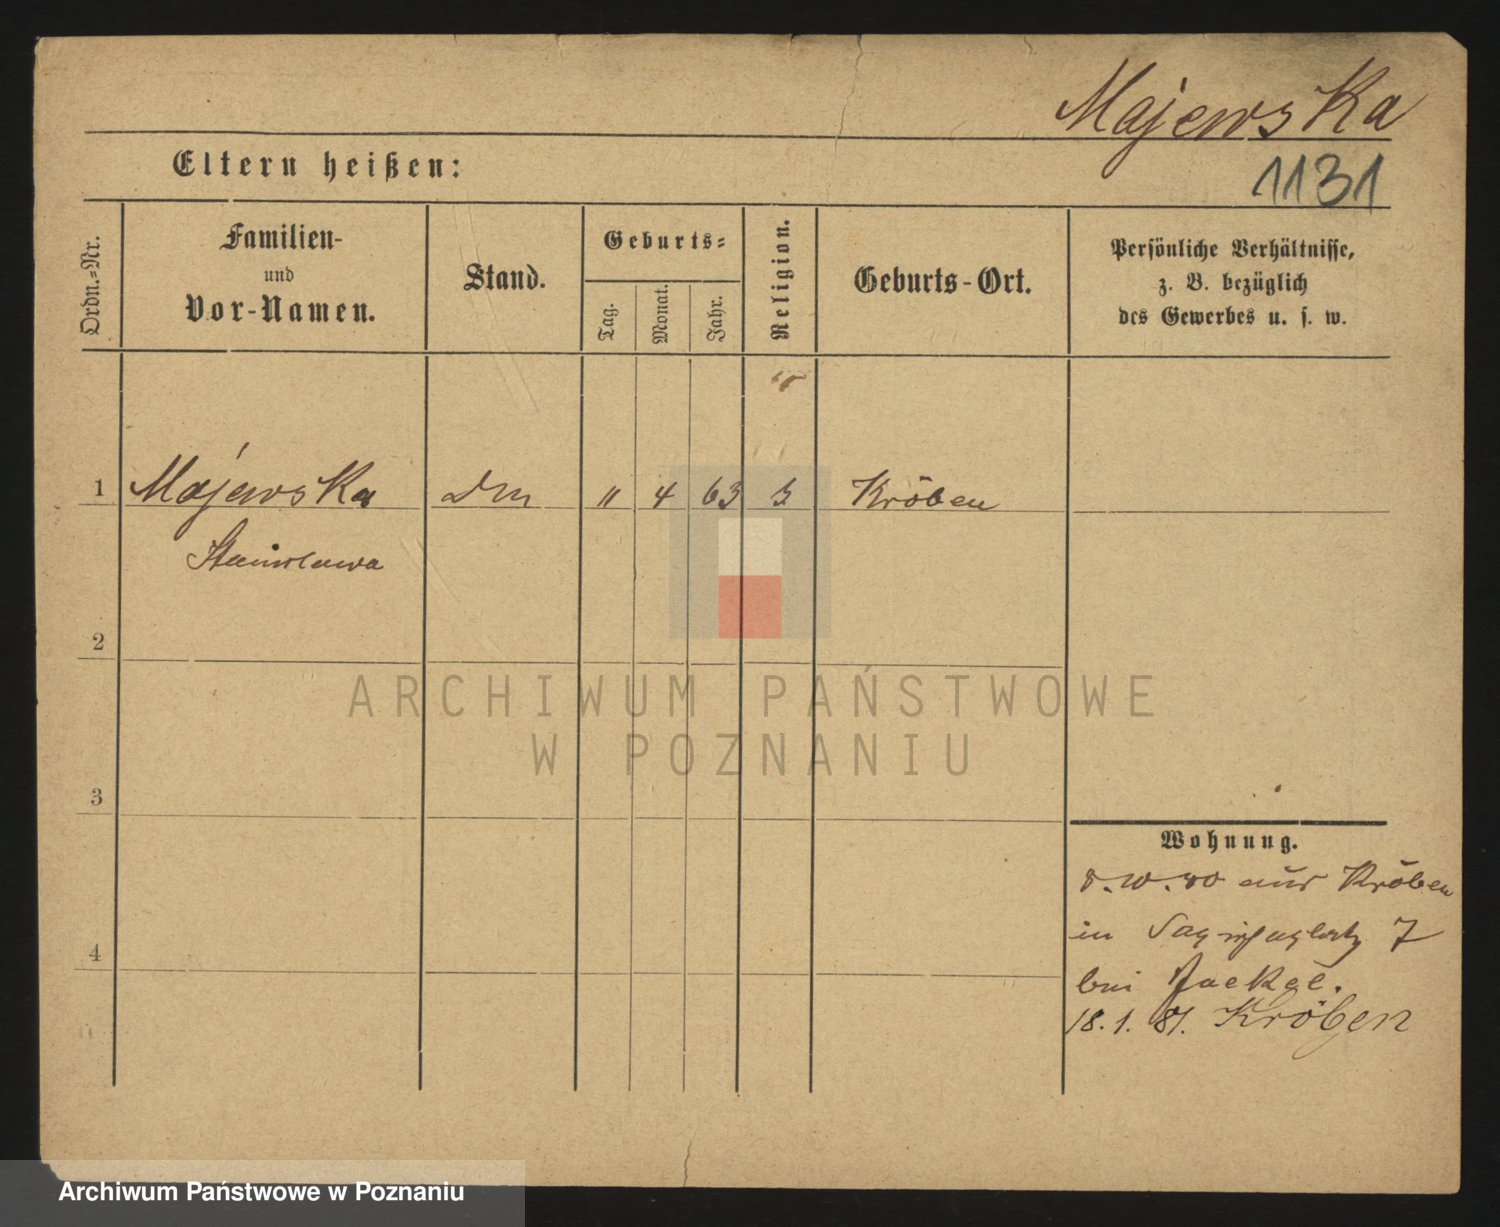 Majewska
1131
Eltern heißen:
Ordn.=Nr.
Familien-
und
Vor-Namen.
Stand.
Geburts=
Tag.
Monat.
Jahr.
Religion.
Geburts-Ort.
Persönliche Verhältnisse,
z. B. bezüglich
des Gewerbes u. s. w.
1 Majewska Dm 11 4 63 Kröben
Stanislawa
2
ARCHIWUM PAŃSTWOWE
W POZNANIU
3
Wohnung.
aus Kröben
in 7
bei Jaekel.
4
18. 1. 81. Kröben
Archiwum Państwowe w Poznaniu